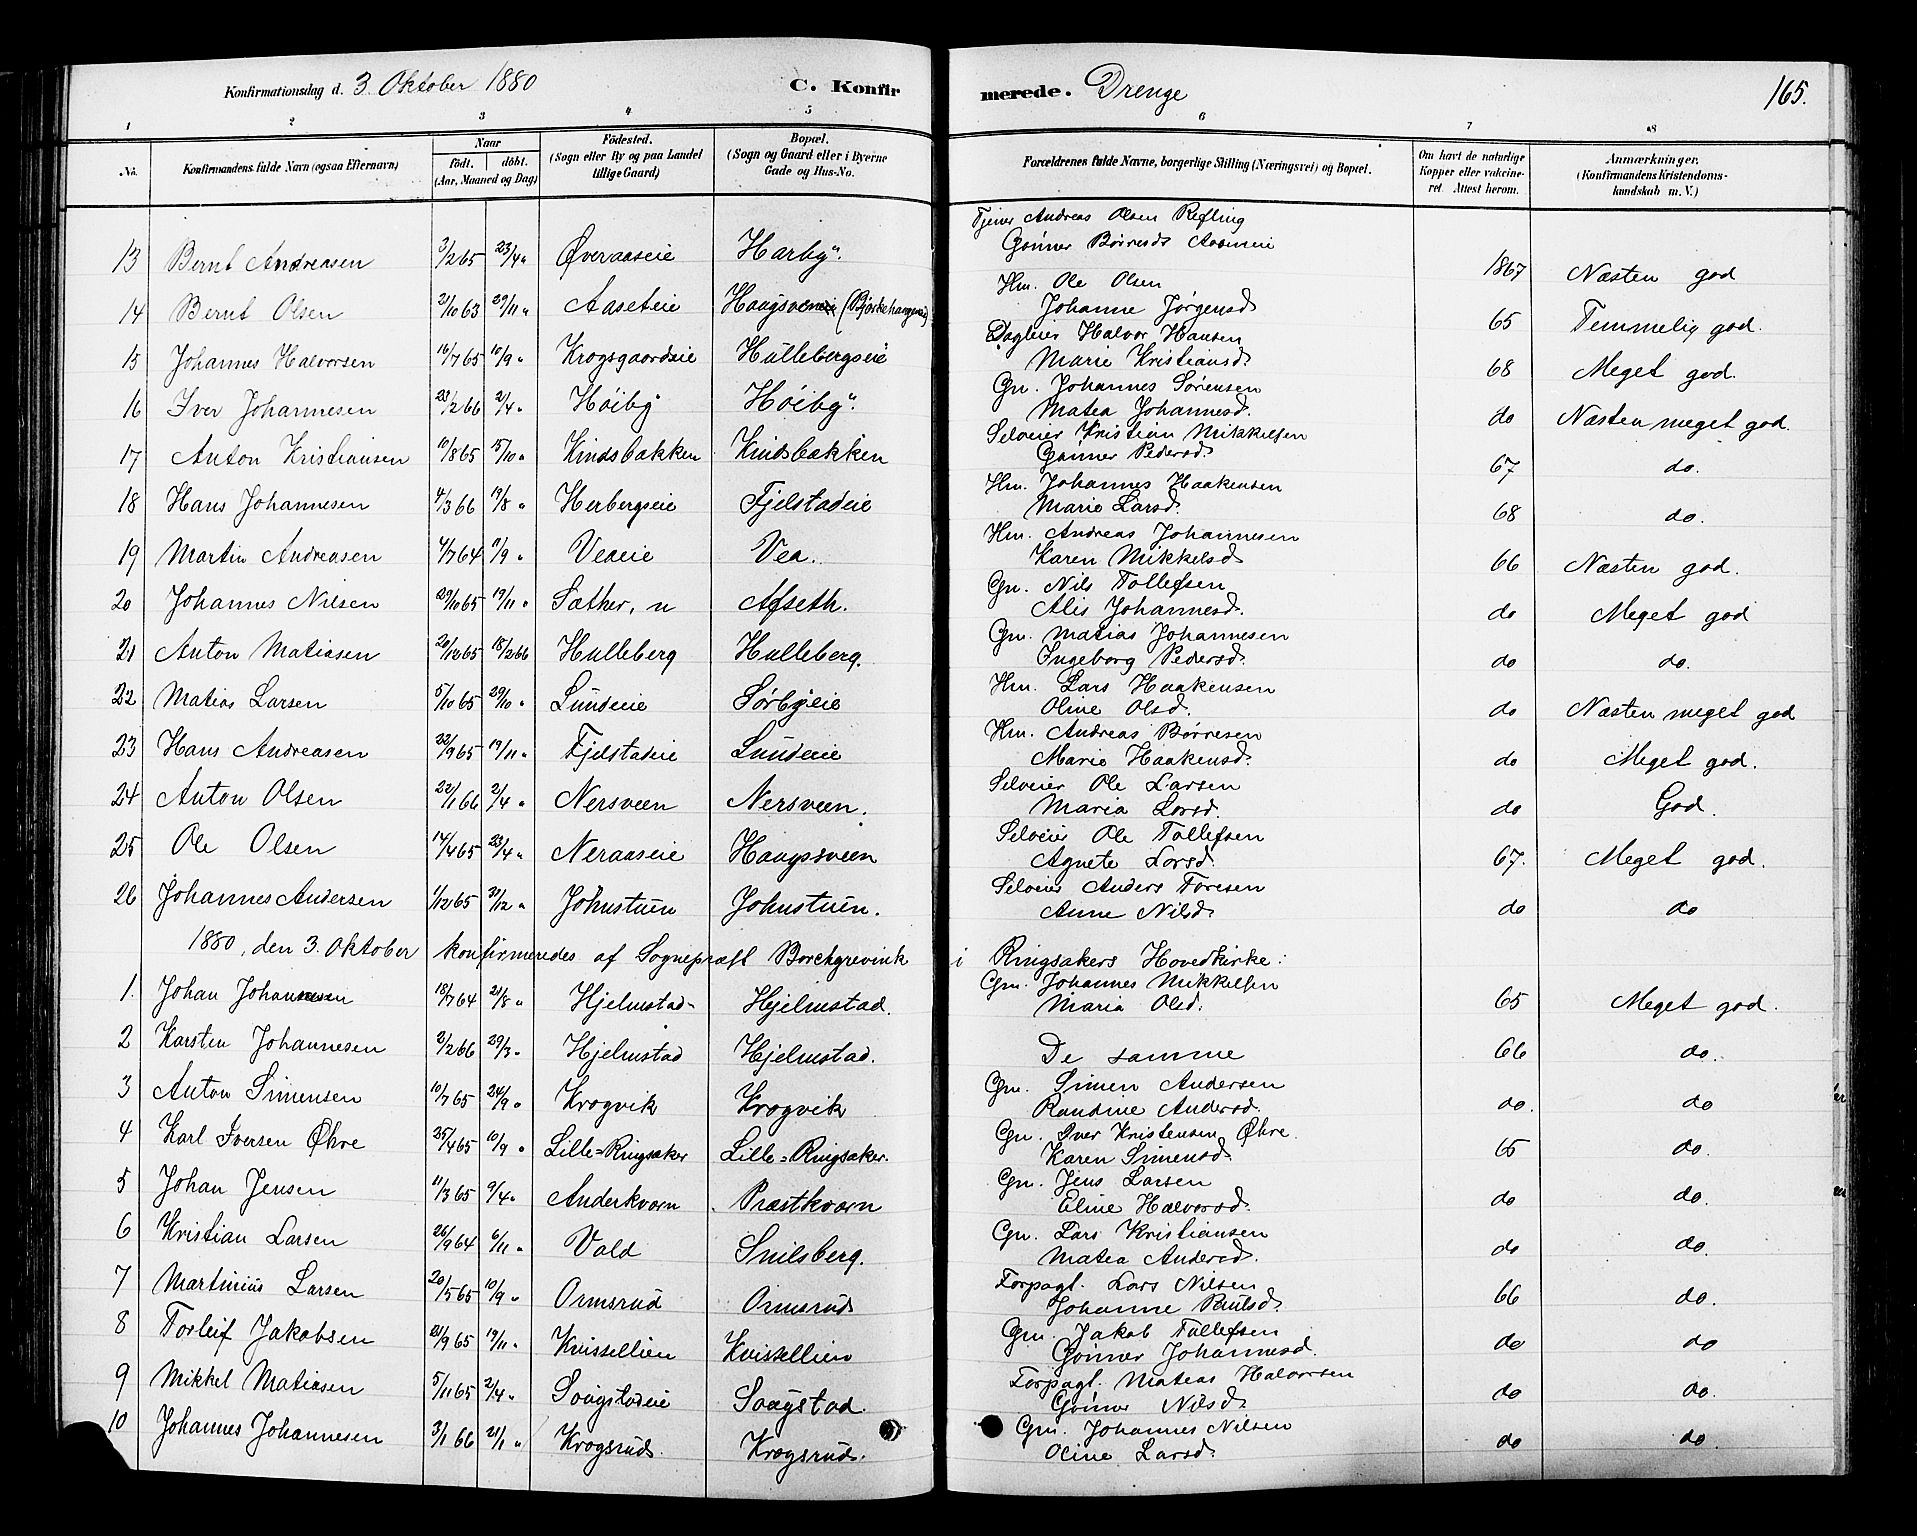 Konfirmationsdag d. 3. Oktober 1880 C. Konfirmerede. Drenge 165.
1 2 3 4 5 6 7 8
No. Konfirmandens fulde Navn (ogsaa Efternavn) Naar født. døbt. (Aar, Maaned og Dag) Fødested. (Sogn eller By og paa Landet tillige Gaard) Bopæl. (Sogn og Gaard eller i Byerne Gade og Hus-No. Forældrenes fulde Navne, borgerlige Stilling (Næringsvei) og Bopæl. Om havt de naturlige Kopper eller vaccineret. Attest herom. Anmærkninger. (Konfirmandens Kristendomskundskab m. V.)
Tjener Andreas Olsen Refling
13 Bernt Andreasen 3/2 65 23/4 " Øveraaseie Harby. Gønner Børresd. 1867 Næsten god
Hm. Ole Olsen
14 Bernt Olsen 2/10 63 29/11 " Aaseteie Haugsveen Johanne Jørgensd. 65 Temmelig god.
Dagleier Halvor Hansen
15 Johannes Halvorsen 16/7 65 10/9 " Krogsgaardseie Hullebergseie Marie Kristiansd. 68 Meget god.
Gm. Johannes Sørensen
16 Iver Johannesen 23/2 66 2/4 " Høiby Høiby. Matea Johannesd. do Næsten meget god.
Selveier Kristian Mikkelsen
17 Anton Kristiansen 10/8 65 15/10 " Kindsbakken Kindsbakken Gønner Pedersd. 67 do.
Hm. Johannes Haakensen
18 Hans Johannesen 4/3 66 19/8 " Herbergseie Fjelstadeie Marie Larsd. 68 do.
Hm. Andreas Johannesen
19 Martin Andreasen 4/7 64 11/9 " Veaeie Vea. Karen Mikkelsd. 66 Næsten god.
Gm. Nils Tollefsen
20 Johannes Nilsen 29/10 65 19/11 " Sæther, n Afseth. Alis Johannesd. do Meget god
Gm. Matias Johannesen
21 Anton Matiasen 20/12 65 18/2 66 Hulleberg Hulleberg. Ingeborg Pedersd. do do.
Hm. Lars Haakensen
22 Matias Larsen 5/10 65 29/10 " Lundeie Sørbyeie Oline Olsd. do Næsten meget god
Hm. Andreas Børresen
23 Hans Andreasen 22/9 65 19/11 " Fjelstadeie Lundeie Marie Haakensd. do Meget god.
Selveier Ole Larsen
24 Anton Olsen 22/1 66 2/4 " Nersveen Nersveen. Maria Larsd. do God.
Selveier Ole Tollefsen
25 Ole Olsen 14/4 65 23/4 " Neraaseie Haugsveen Agnete Larsd. 67. Meget god.
Selveier Anders Toresen
26 Johannes Andersen 1/12 65 31/12 " Johnstuen Johnstuen. Anne Nilsd. do do
1880, den 3. Oktober konfirmeredes af Sogneprest Borchgrevink i Ringsakers Hovedkirke:
Gm. Johannes Mikkelsen
1. Johan Johannesen 18/7 64 21/8 " Hjelmstad Hjelmstad. Maria Olsd. 65 Meget god.
2 Karsten Johannesen 2/2 66 29/3 " Hjelmstad Hjelmstad. De samme 66 do.
Gm. Simen Andersen
3 Anton Simensen 10/7 65 24/9 " Krogvik Krogvik Randine Andersd. do. do
Gm. Iver Kristensen Øhre.
4 Karl Iversen Øhre 25/4 65 10/9 " Lille-Ringsaker Lille-Ringsaker. Karen Simensd. 65 do.
Gm. Jens Larsen
5 Johan Jensen 11/3 65 9/4 " Anderkvern Præstkvern Eline Halvorsd. do do.
Gm. Lars Kristiansen
6 Kristian Larsen 26/9 64 6/11 " Vold Snilsberg. Matea Andersd. do do.
Forpagt. Lars Nilsen
7 Martinius Larsen 20/5 65 10/9 " Ormsrud Ormsrud Johanne Paulsd. 66 do.
Gm. Jakob Tollefsen
8 Torleif Jakobsen 21/9 65 19/11 " Kvissellien Kvissellien Gønner Johannesd. do do
Forpagt. Mateas Halvorsen
9 Mikkel Matiasen 5/11 65 2/4 " Saugstadeie Saugstad. Gønner Nilsd. do do.
Gm. Johannes Nilsen
10 Johannes Johannesen 3/1 66 21/1 " Krogsrud. Krogsrud. Oline Larsd. do do.